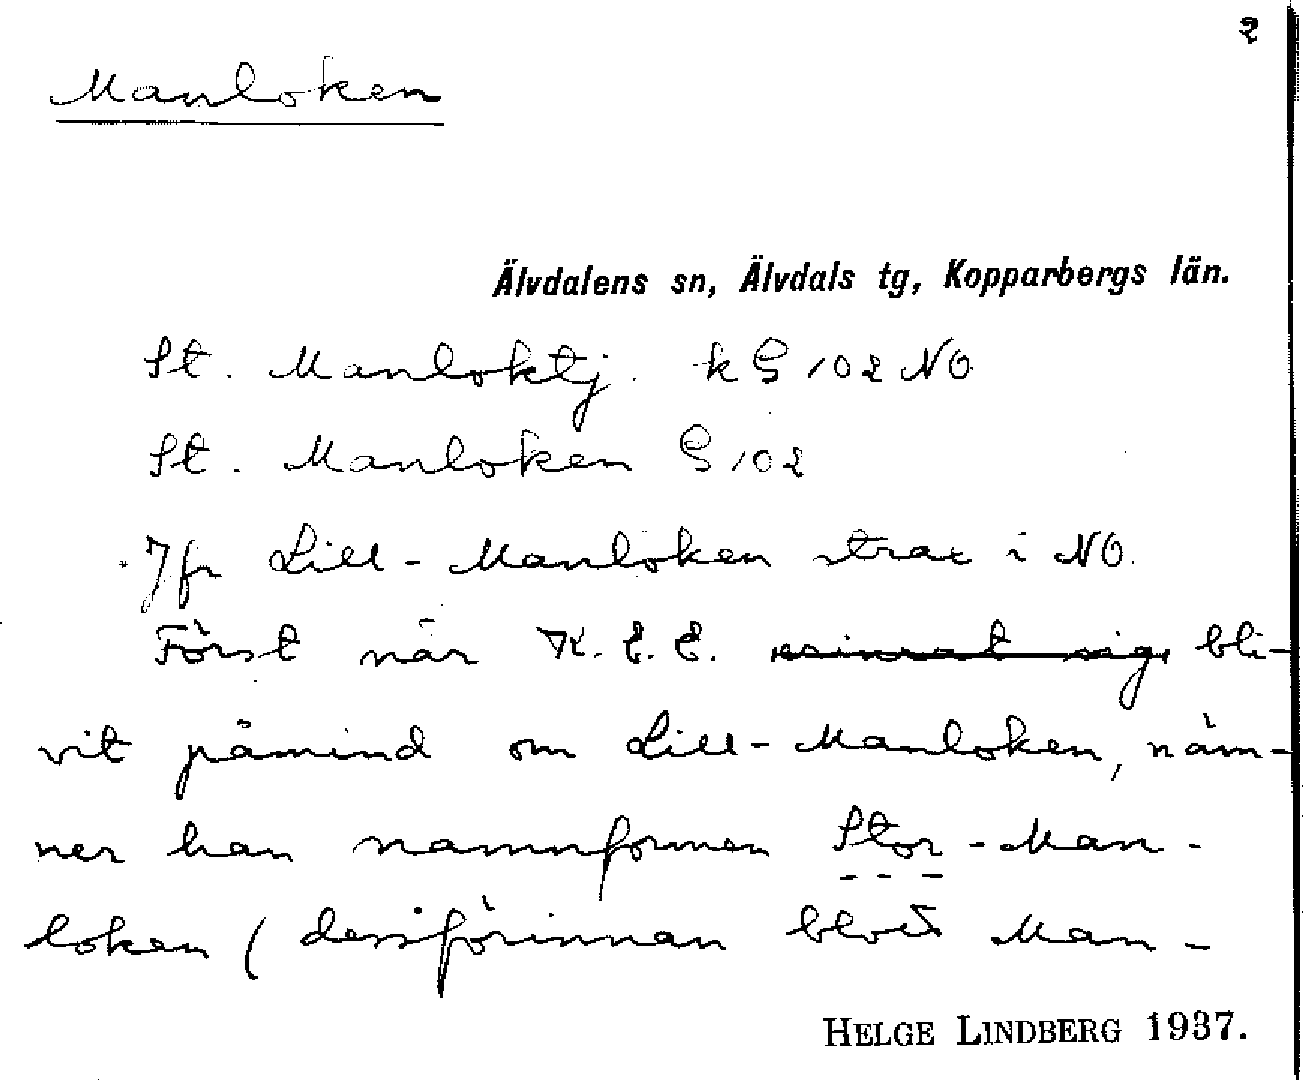 2
Manloken
Älvdalens sn, Älvdals tg, Kopparbergs län.
St. Manloktj. k G 102 NO
St. Manloken G 102
Jfr Lill-Manloken strax i NO.
Först när K.E.E. sig bli-
vit påmind om Lill-Manloken, näm-
ner han namnformen Stor-Man-
loken (dessförinnan blott Man-
HELGE LINDBERG 1937.